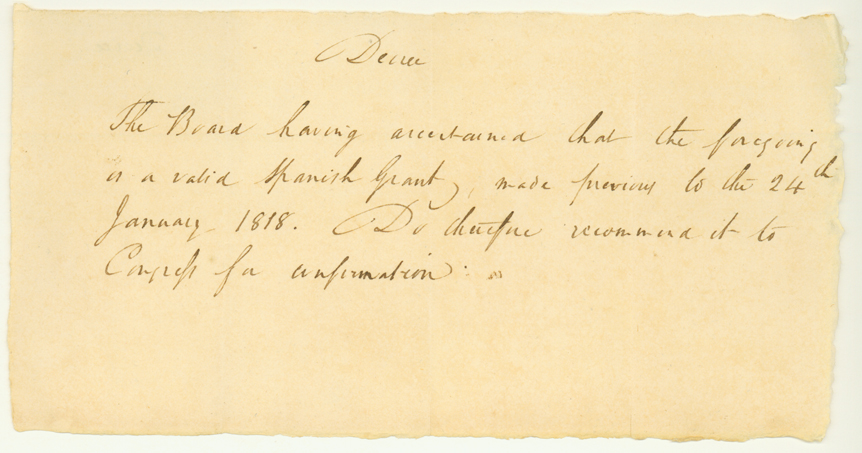 Decree
The Board having ascertained that the foregoing
is a valid Spanish Grant, made previous to the 24th
January 1818. Do therefore recommend it to
Congress for confirmation.